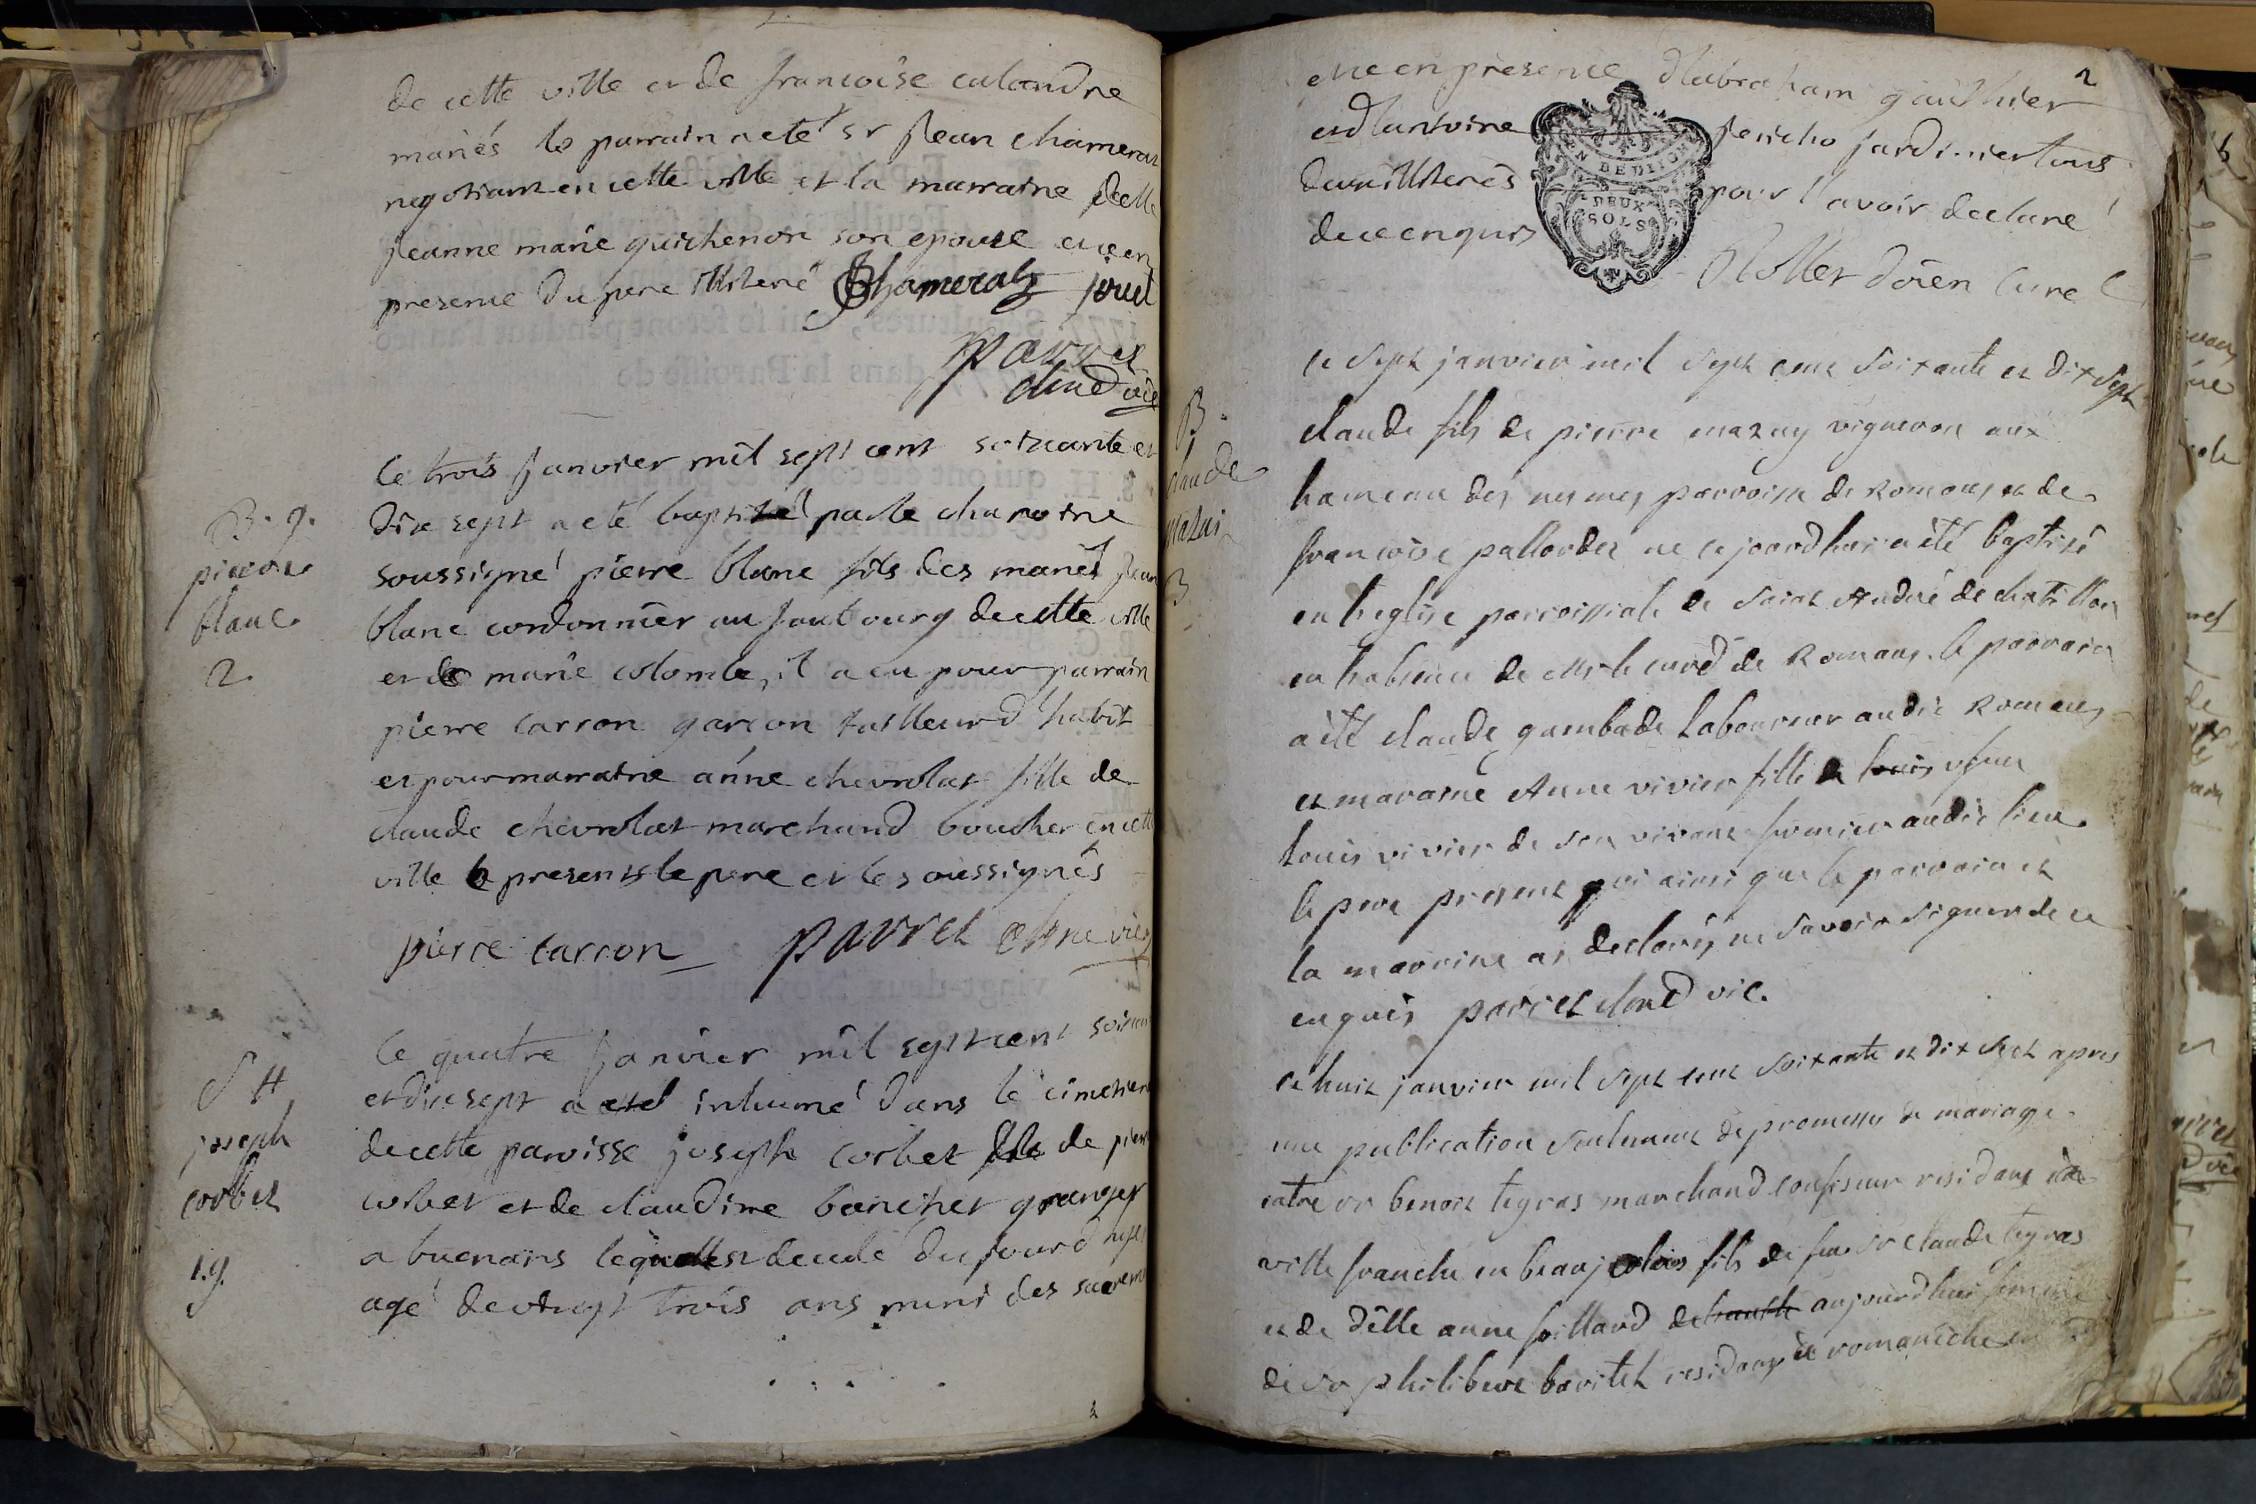 de cette ville et de francoise calandre
mariés le parrain a eté sr jean chameraz
negotiant en cette ville et la marraine delle
jeanne marie guichenon son epouse et ce en
presence du pere illiteré Chameraz
parret
chned vic
Le trois janvier mil sept cent soixante et
B. g.
pierre
blanc
2.
dix sept a eté baptizé par le chanoine
soussigné pierre blanc fils des mariés jean
blanc cordonnier au faubourg de cette ville
et de marie colombe, il a eu pour parrain
pierre carron garcon tailleur d'habit
et pour marraine anne chevrolat fille de
claude chevrolat marchand boucher en cette
ville presents le pere et les soussignés
pierre carron parret chne vic
Le quatre janvier mil sept cent soixante
S H
joseph
corbet
1.g.
et dix sept a eté inhumé dans le cimetiere
de cette paroisse joseph corbet fils de pierre
corbet et de claudine banchet granger
a buenans lequel est decedé du jourd'hyer
agé de vingt trois ans muni des sacrements
2
et ce en presence d'abraham gauthier
et d'antoine jericho jardinier tous
deux illiterés pour l'avoir declaré
de ce enquis
EN BEDITION
DEUX
SOLS
doïen curé
B.
claude
mazui
B
Le sept janvier mil sept cent soixante et dix sept
claude fils de pierre mazuy vigneron aux
hameau des mesmes parroisse de Romans et de
francoise pallordet né ce jourdhui a été baptisé
en l'eglise parroissiale de saint André de chatillon
en l'absence de Mr le curé de Romans. le parrain
a été claude gambade laboureur audit Romans
et maraine Anne vivier fille de louis v feu
louis vivier de son vivant fermier audit lieu
le pere present qui ainsi que le parrain et
la marrine ont declarés ne savoir signer de ce
enquis parret chned vic.
Le huit janvier mil sept cent soixante et dix sept apres
une publication seulement de promesses de mariage
entre sr benoit tegras marchand confiseur residant à
ville franche en beaujolois fils de feu sr claude tegras
et de délle anne soillard aujourd'huis femme
de sr philibert baritel residans à romanèche en